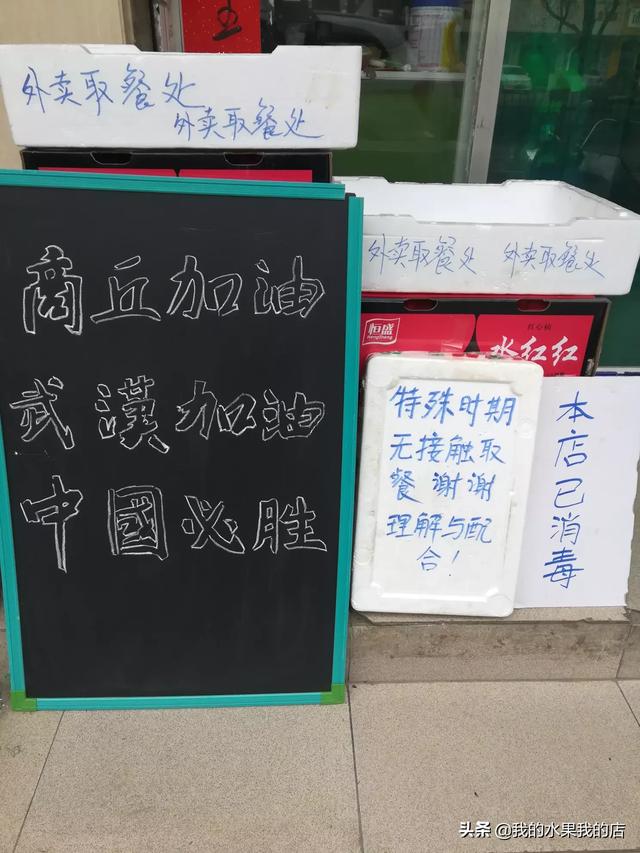 外卖取餐处
外卖取餐处
外卖取餐处 外卖取餐处
恒盛
HengSheng
红心柚
水红红
商丘加油
武漢加油
中國必胜
特殊时期
无接触取
餐 谢谢
理解与配
合!
本店已消毒
头条 @我的水果我的店